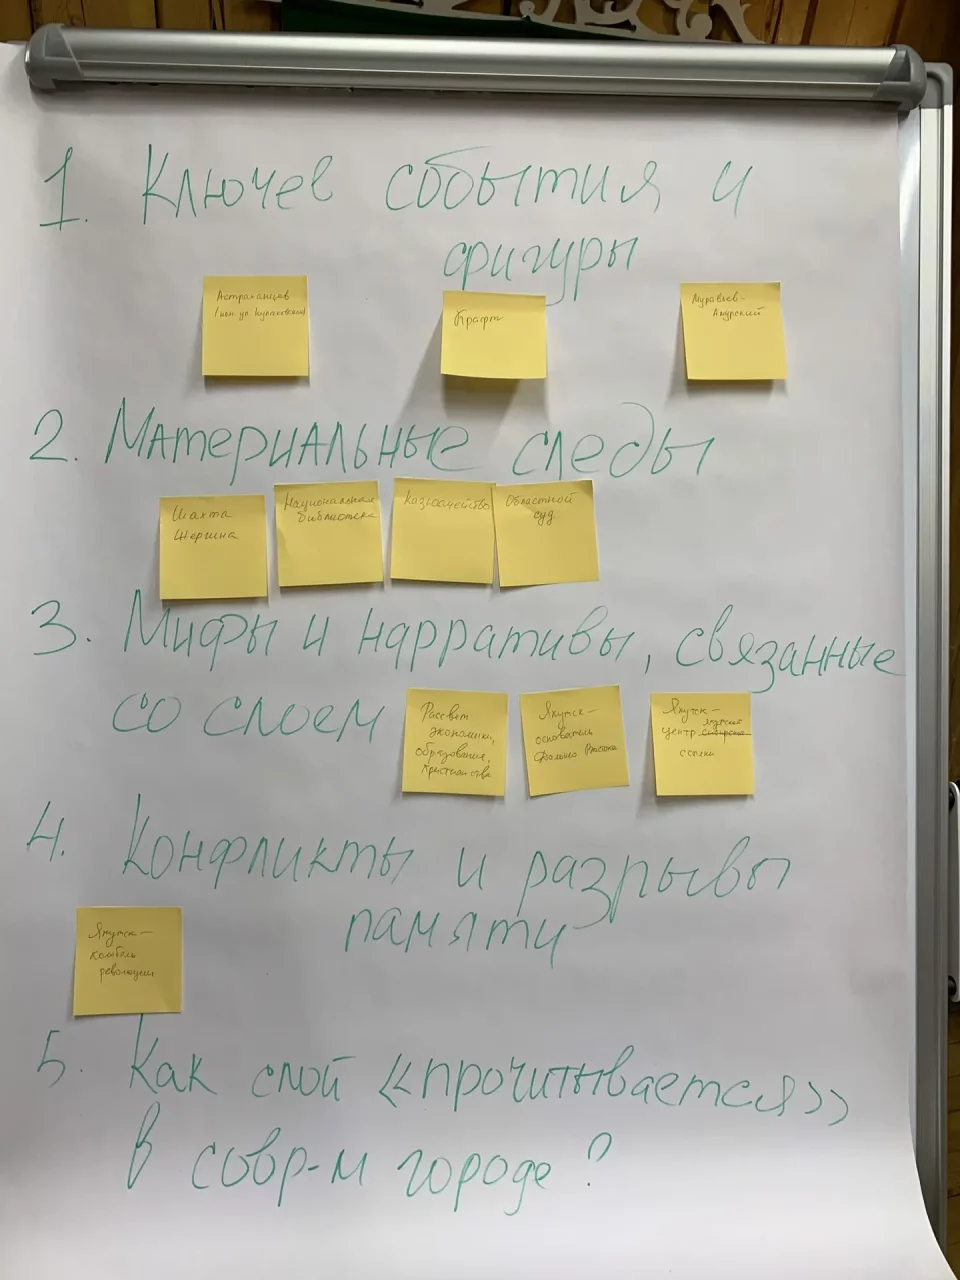 1. Ключев события и
фигуры
Астраханцев
(ныне ул. Кулаковского)
Крафт
Муравьев-
Амурский
2. Материальные следы
Шахта
Шергина
Национальная
библиотека
Казначейство
Областной
суд
3. Мифы и нарративы, связанные
со слоем
Рассвет
экономики,
образования,
христианства
Якутск —
основатель
Дальнего Востока
Якутск —
якутская
центр сибирская
ссылки
4. Конфликты и разрывы
памяти
Якутск —
колыбель
революции
5. Как слой «прочитывается»
в совр-м городе?